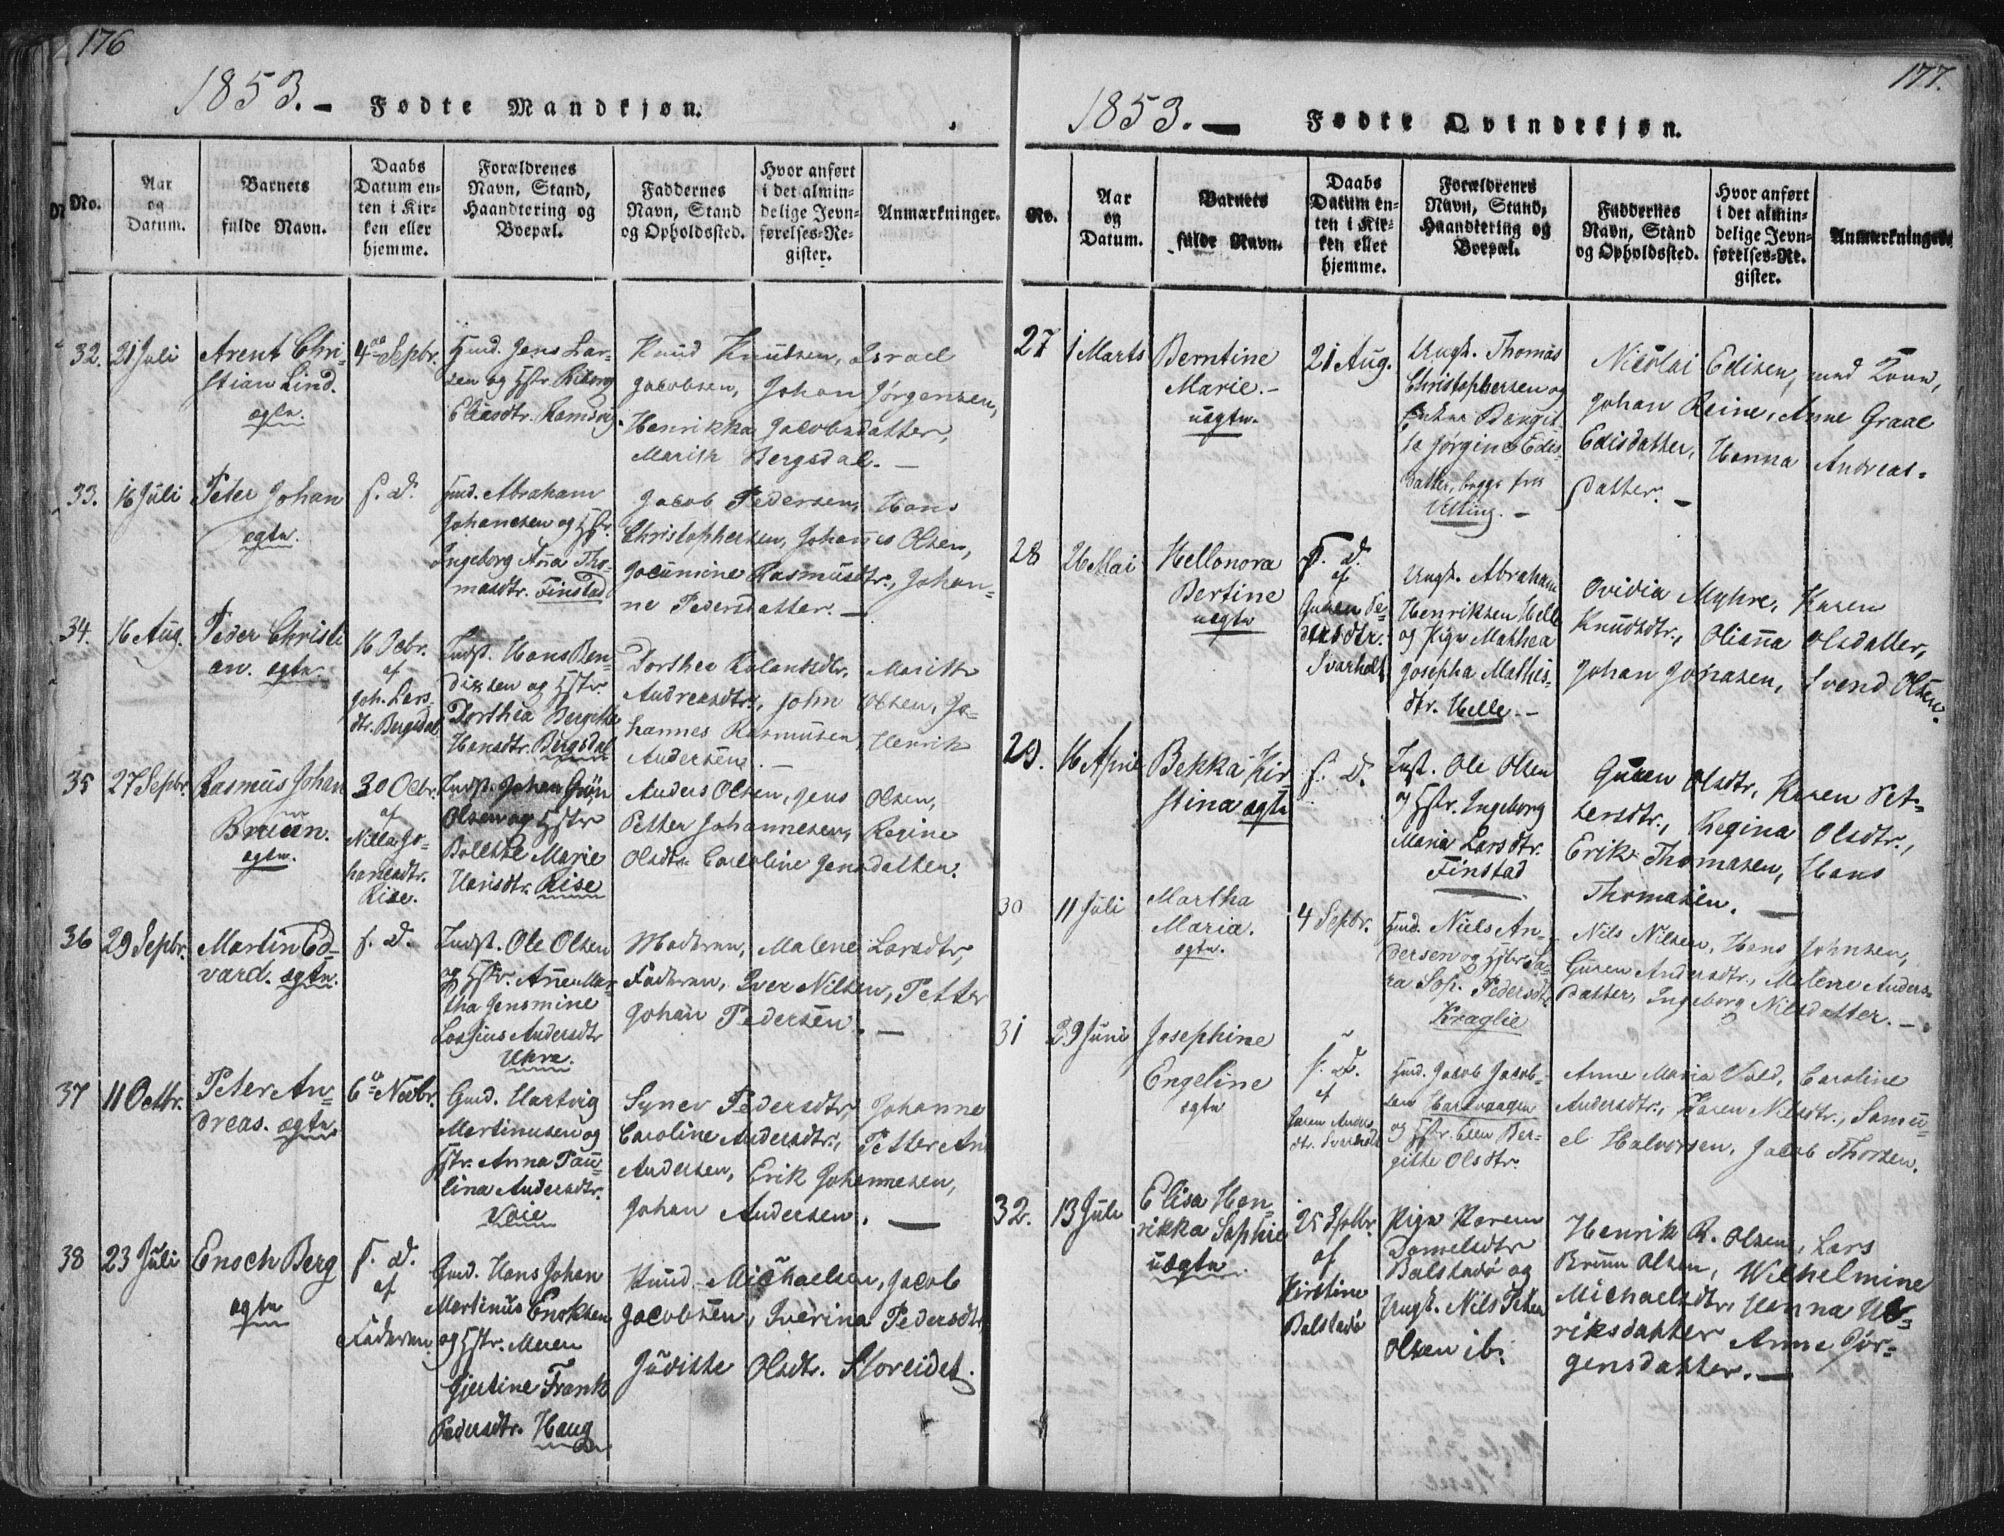 176
1853. – Fødte Mandkjøn.
No.
Aar
og
Datum.
Barnets
fulde Navn.
Daabs
Datum en-
ten i Kir-
ken eller
hjemme.
Forældrenes
Navn, Stand,
Haandtering og
Boepæl.
Faddernes
Navn, Stand
og Opholdssted.
Hvor anført
i det almin-
delige Jevn-
førelses-Re-
gister.
Anmærkninger.
32. 21 Juli
Arent Chri-
stian Lind.
ægte.
4de Sepbr.
Gmd. Jens Lar-
sen og Hstr.
Eliasdtr. Ramsøy
Knud Knudsen, Israel
Jacobsen, Johan Jørgensen,
Henrikka Jacobsdatter,
Marith Bergsdal. –
33. 16 Juli
Peter Johan
ægte.
s. D.
Gmd. Abraham
Johanesen og Hstr.
Ingeborg Anna Tho-
masdtr. Finstad
Jacob Pedersen, Hans
Christophersen, Johannes Olsen,
Jocumine Rasmusdtr., Johan-
ne Pedersdatter. –
34. 16 Aug.
Peder Christi
an. ægte.
16 Ocbr.
af
Joh. Lars-
dtr. Bergsdal
Indst. Hans Ben-
dixsen og Hstr.
Dorthea Bergethe
Hansdtr. Bergsdal
Dorthea Rolantsdtr., Marith
Andreasdtr., John Olsen, Jo-
hannes Rasmussen, Henrik
Andersen. –
35 27 Sepbr.
Rasmus Johan
Bruun.
ægte.
30 Ocbr.
af
Nilla Jo-
hanesdtr.
Rise.
Indst. Johan Grøn
Olsen og Hstr
Bolethe Marie
Hansdtr. Rise
Anders Olsen, Jens Olsen,
Petter Johannesen, Regine
Olsdtr. Caroline Jensdatter.
36 29 Sepbr.
Martin Ed-
vard. ægte.
s. D.
Indst. Ole Olsen
og Hstr. Anne Mar-
tha Jensmine
Losjius Andersdtr
Ukra.
Moderen, Malene Larsdtr,
Faderen, Iver Nilsen, Petter
Johan Pedersen. –
37 11 Octbr.
Peter An-
dreas. ægte.
6te Novbr.
Gmd. Hartvig
Martinusen og
Hstr. Anna Pau-
lina Andersdtr.
Voie
Synev Pedersdtr, Johanne
Caroline Andersdtr., Petter An
Andersen, Erik Johannesen,
Johan Andersen. –
38 23 Juli
Enoch Berg
ægte
s. D.
af
Faderen
Gmd. Hans Johan
Martinus Enoksen
og Hstr. Meren
Gjertine Frank
Pedersdtr. Haug
Knud Michaelsen, Jacob
Jacobsen, Iverina Pedersdtr,
Juditte Olsdtr. Storeidet.
177.
1853. – Fødte Qvindekjøn.
No.
Aar
og
Datum.
Barnets
fulde Navn.
Daabs
Datum en-
ten i Kir-
ken eller
hjemme.
Forældrenes
Navn, Stand,
Haandtering og
Boepæl.
Faddernes
Navn, Stand
og Opholdssted.
Hvor anført
i det almin-
delige Jevn-
førelses-Re.
gister.
Anmærkninger.
27 1 Marts
Berntine
Marie. –
uægte.
21 Aug.
Ungk. Thomas
Christophersen og
Enken Bengit-
ta Jørgine Edis-
datter, begge fra
Utting. –
Nicolai Edisen, med Kone,
Johan Reine, Anne Graae
Edisdatter, Hanna Andreas-
datter. –
28 26 Mai
Hellonora
Bertine
uægte
s. D.
af
Guren Pe-
dersdtr.
Svarholt
Ungk. Abraham
Henriksen Helle
og Pige Mathea
Josepha Mathis-
dtr. Helle. –
Ovidia Myhre, Karen
Knudsdtr., Olianna Olsdatter,
Johan Jonasen, Svend Olsen.
29. 16 April
Bekka Kir
stina ægte
s. D.
Inst. Ole Olsen
og Hstr. Ingeborg
Maria Larsdtr.
Finstad
Guren Olsdtr, Karen Pet-
tersdtr., Regina Olsdtr.,
Erik Thomasen, Hans
Thomasen. –
30 11 Juli
Martha
Maria.
ægte.
4 Sepbr.
Gmd. Niels An-
dersen og Hstr. Sa-
ra Sop. Pedersdtr
Kraglie
Nils Nilsen, Hans Johnsen,
Guren Andersdtr., Malene Anders-
datter, Ingeborg Nilsdatter. –
31 29 Juni
Josephine
Engeline
ægte
s. D.
af
Karen Anders
dtr. Svarholt
Gmd. Jacob Jacob-
sen Harevaagen
og Hstr. Elen Ber-
githe Olsdtr.
Anne Maria Vold, Caroline
Andersdtr., Karen Nilsdtr., Samu-
el Halvorsen, Jacob Thorsen.
32. 13 Juli
Elisa Hen-
rikka Sophie
uægte.
25
af
Kirstine
Balstadø
Pige Karen
Danielsdtr
Balstadø og
Ungk. Nils Peter
Olsen ib:
Henrik R. Olsen, Lars
Bruun Olsen, Wilhelmine
Michaelsdtr, Hanna Hen-
riksdatter Anne Jør-
gensdatter. –